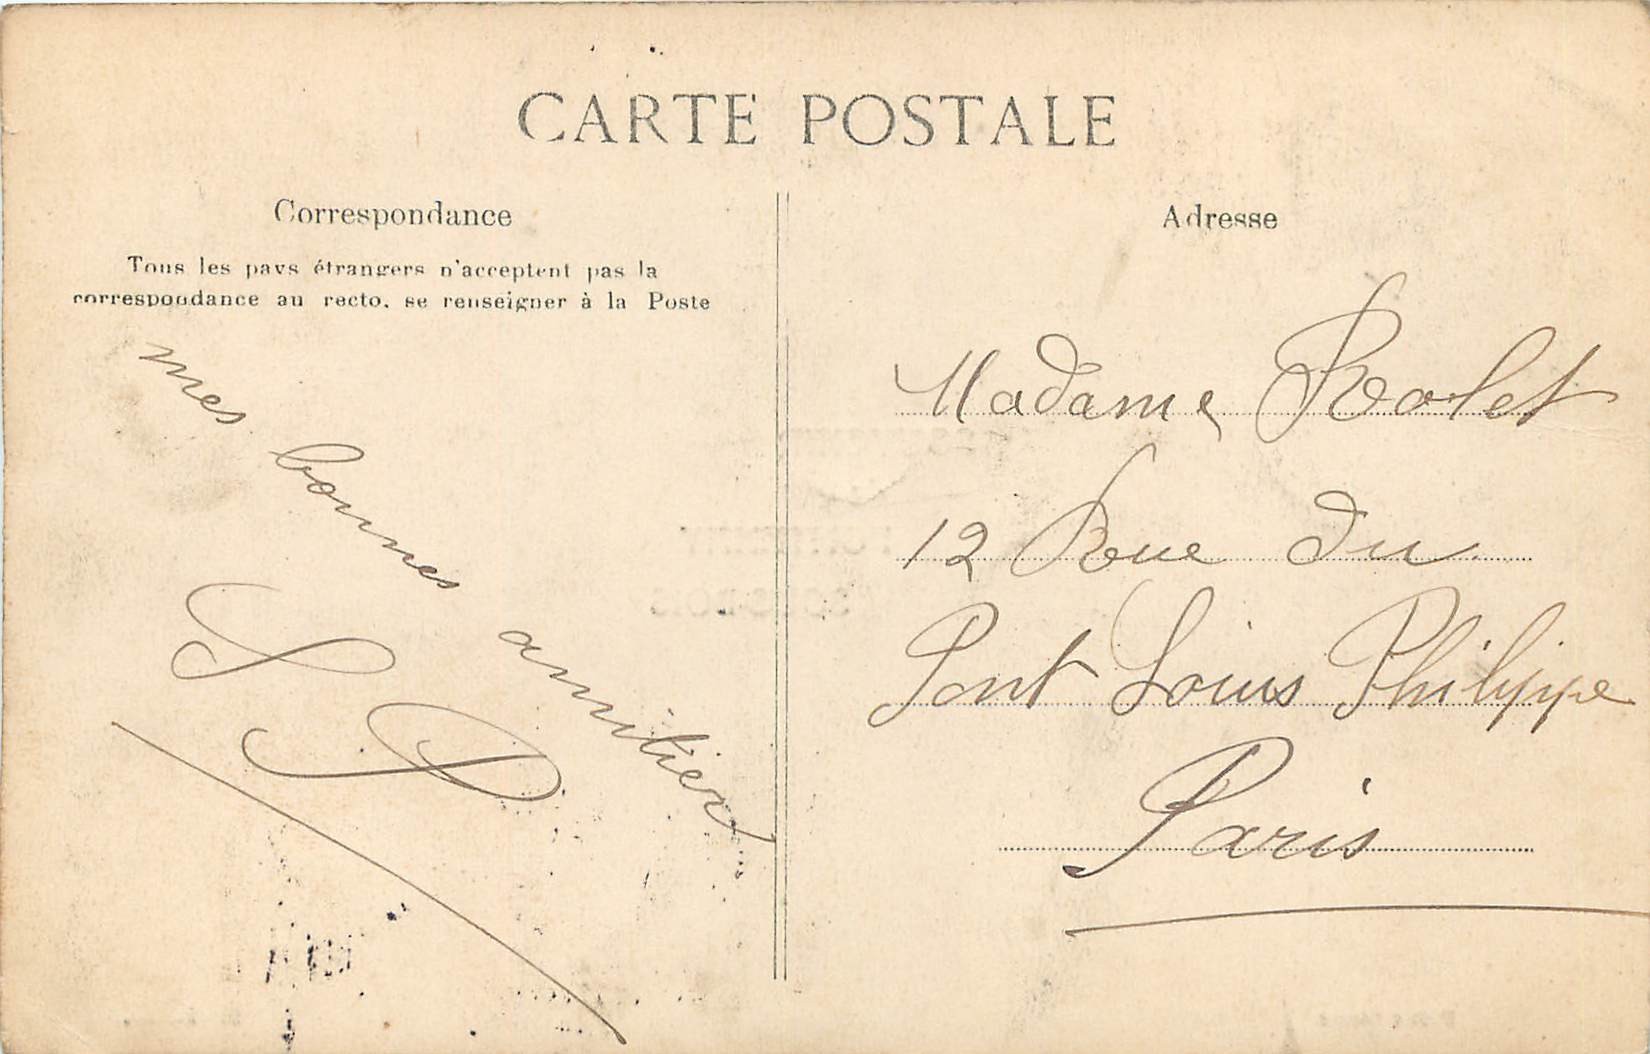 CARTE POSTALE
Correspondance
Tous les pays étrangers n'acceptent pas la
correspondance au recto, se renseigner à la Poste
mes bonnes amitiés
Adresse
Madame Rolet
12 Rue du
Pont Louis Philippe
Paris